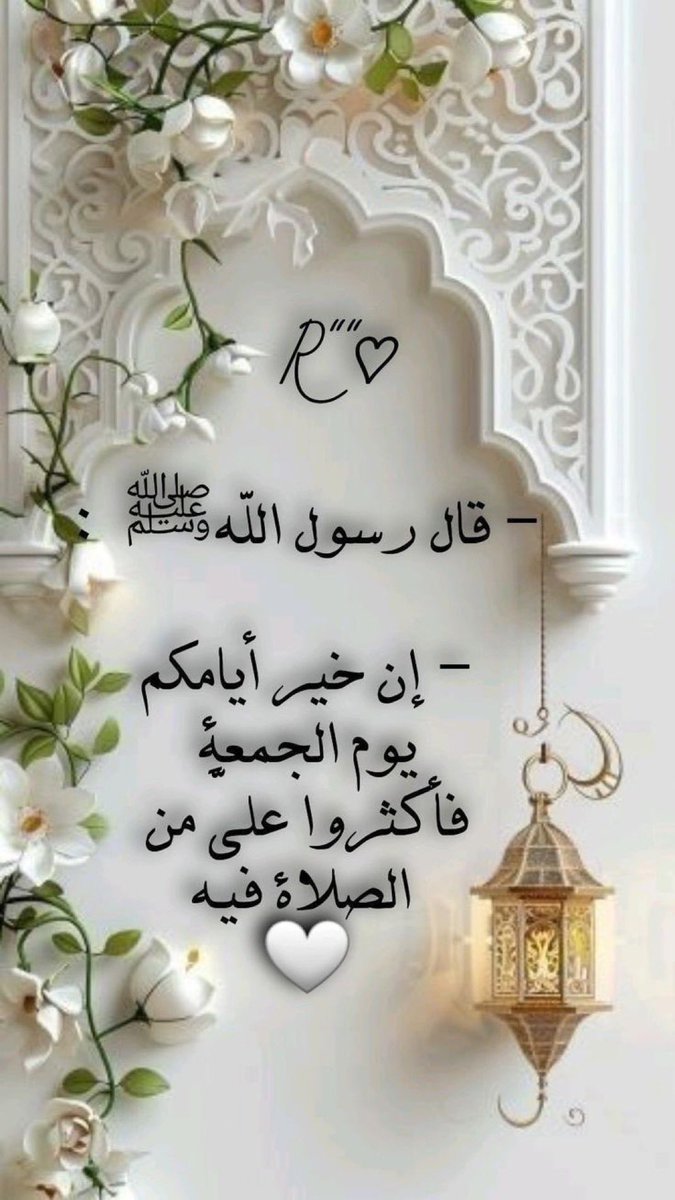 R""♡
– قال رسول اللّٰه ﷺ :
– إن خير أيامكم
يوم الجمعهِٕ
فأكثروا على من
الصلاة فيه
🤍